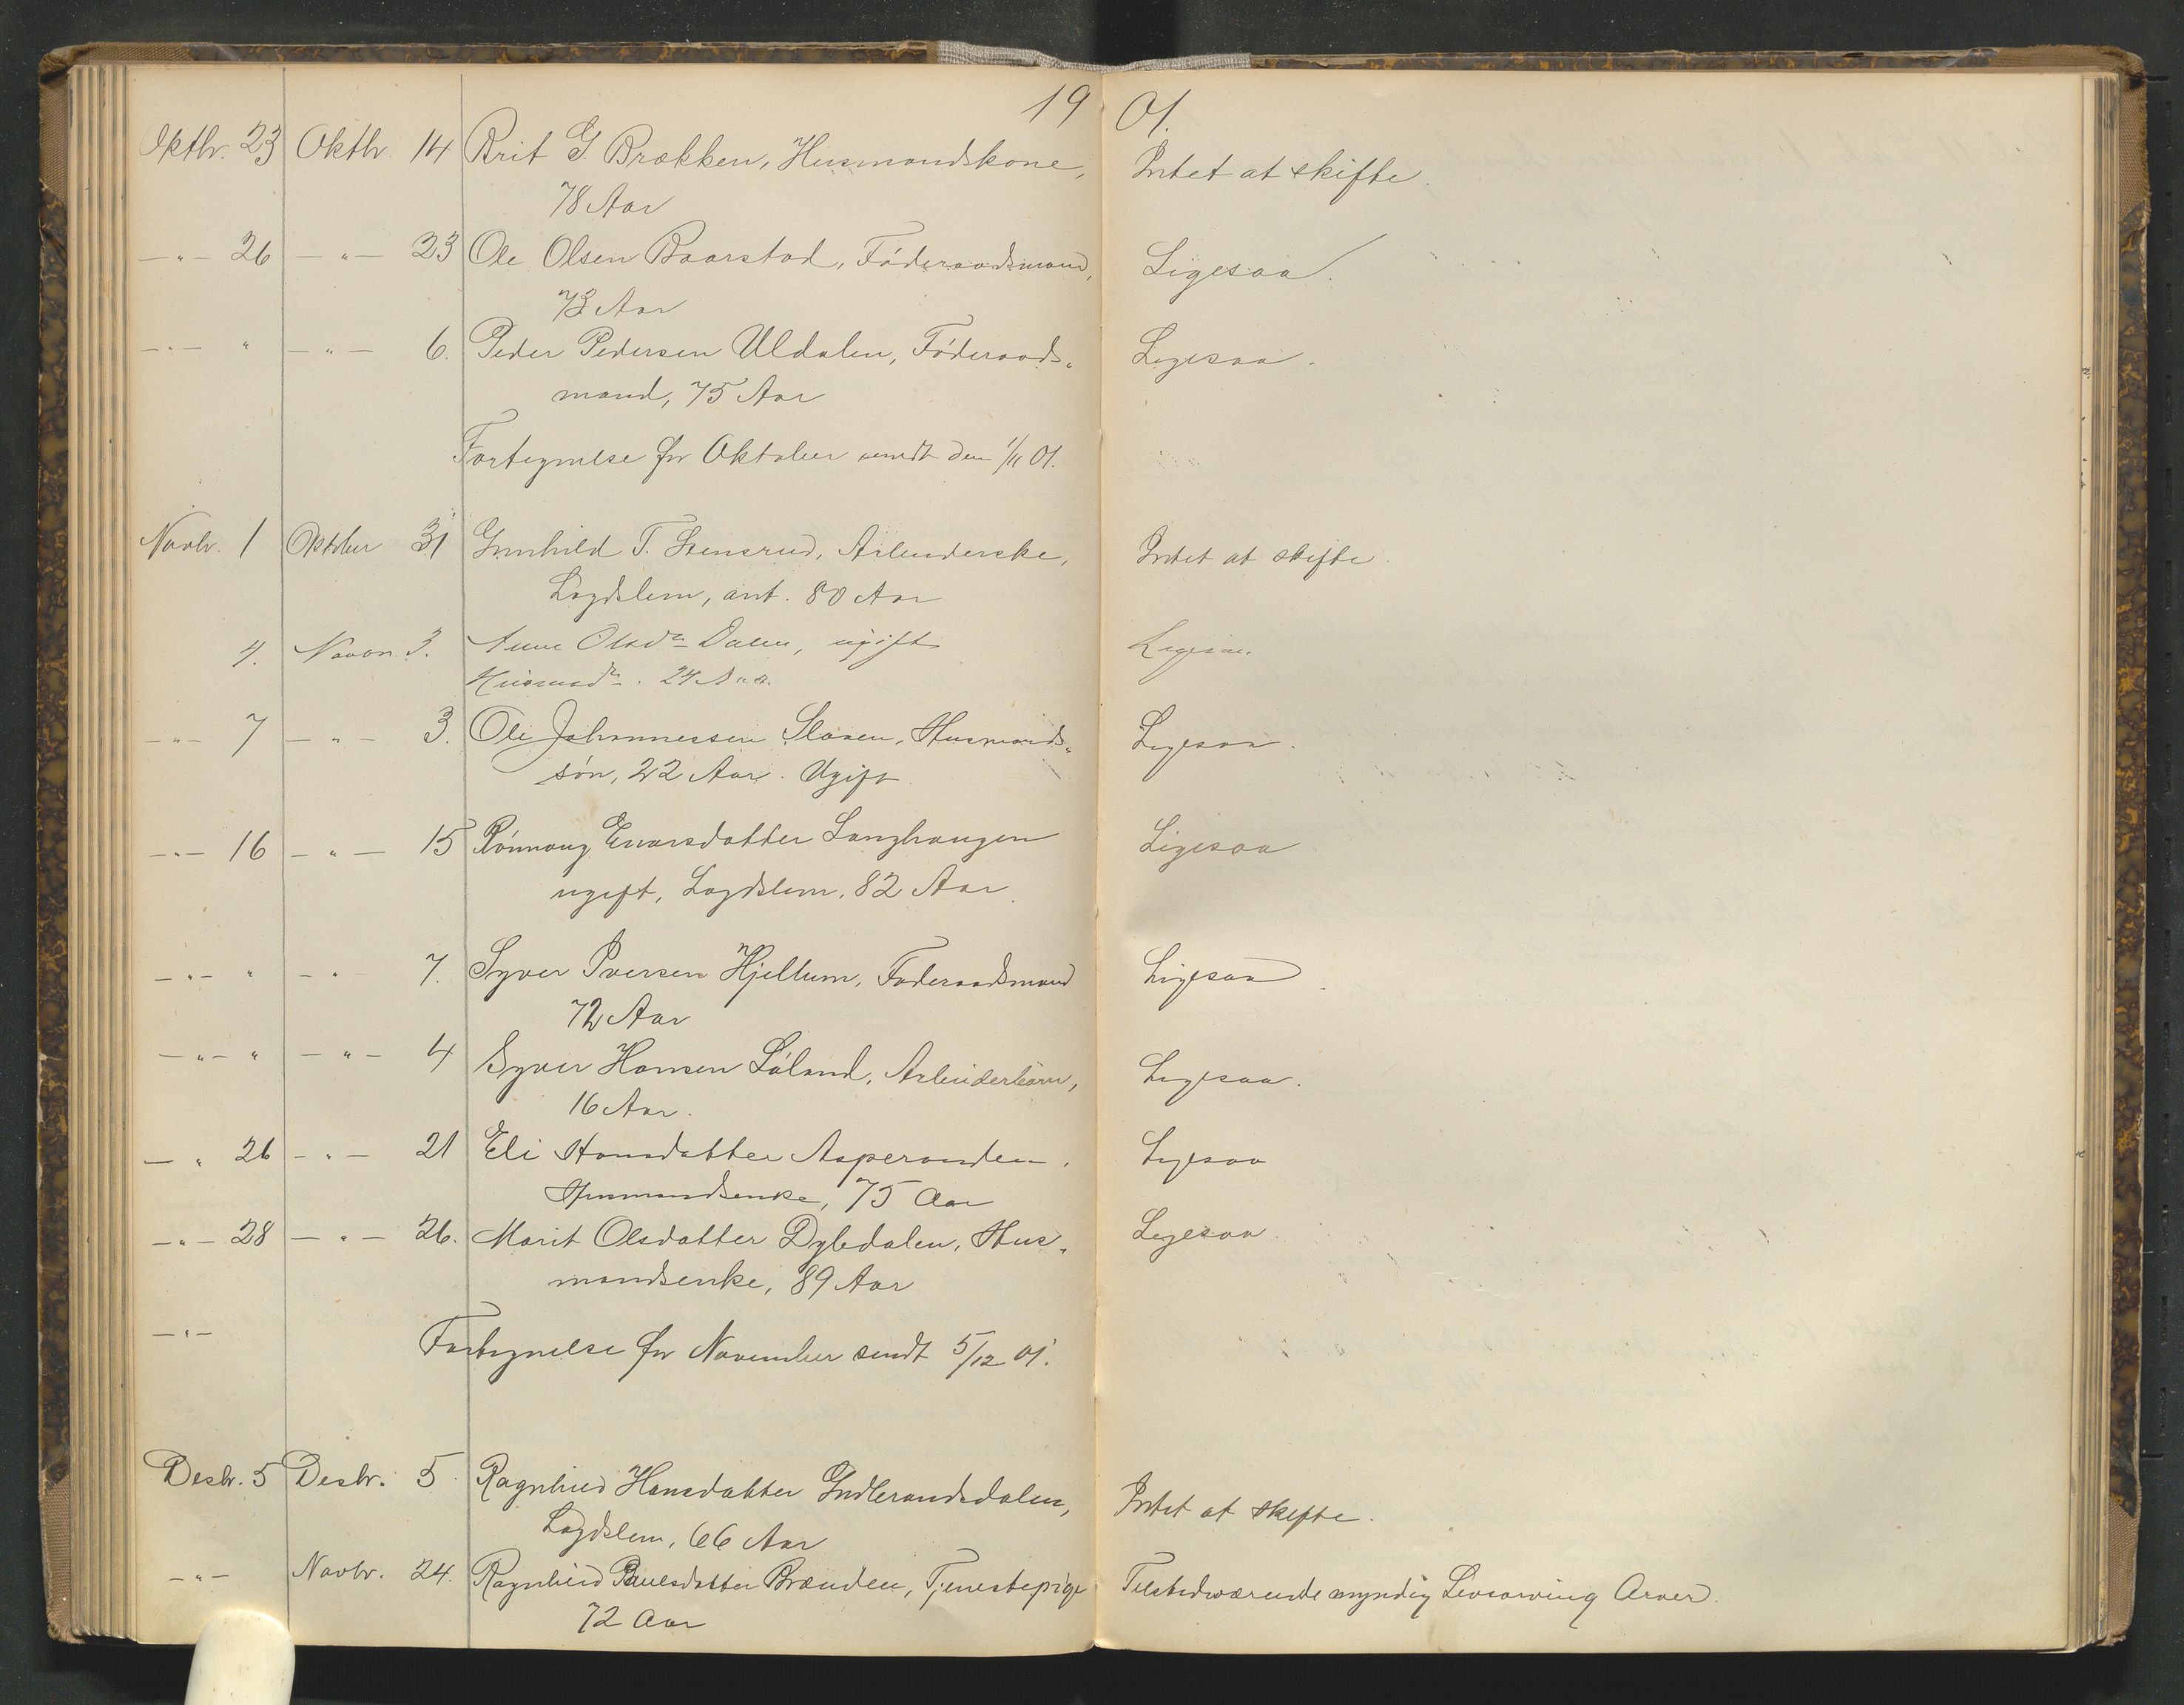 19 01.
Oktbr. 23 Oktbr 14 Brit G. Brækken, Husmandskone, Intet at skifte.
78 Aar
—"— 26 —"— 23 Ole Olsen Baarstad, Föderaadsmand, Ligesaa.
73 Aar
—"— " —"— 6. Peder Pedersen Uldalen, Föderaads- Ligesaa.
mand, 75 Aar
Fortegnelse for Oktober sendt den 1/11 01.
Novbr. 1 Oktober 31 Gunhild T. Stensrud, Arbeiderske, Intet at skifte.
Lægdslem, ant. 80 Aar
4. Novbr 3. Anne Olsdr Dalen, ugift Ligesaa.
Husmdr. 24 Aar.
—"— 7 —"— 3. Ole Johannessen Slaaen, Husmands- Ligesaa.
sön, 22 Aar. Ugift.
—"— 16 —"— 15 Rönnaug Enarsdatter Langhaugen Ligesaa
ugift, Lægdslem, 82 Aar.
—"— " —"— 7. Syver Iversen Hjellum, Föderaadsmand Ligesaa.
72 Aar
—"— " —"— 4 Syver Hansen Löland, Arbeiderbarn, Ligesaa.
16 Aar.
— " 26 —"— 21 Eli Hansdatter Asperanden, Ligesaa
Husmandsenke, 75 Aar
—"— 28 —"— 26. Marit Olsdatter Dybdalen, Hus- Ligesaa.
mandsenke, 89 Aar
—"— Fortegnelse for November sendt 5/12 01.
Desbr. 5 Desbr. 5. Ragnhild Hansdatter Indlerandsdalen, Intet at skifte.
Lægdslem, 66 Aar
—"— Novbr. 24. Ragnhild Paulsdatter Brænden, Tjenestepige Tilstedværende myndig Livsarving Arver.
72 Aar